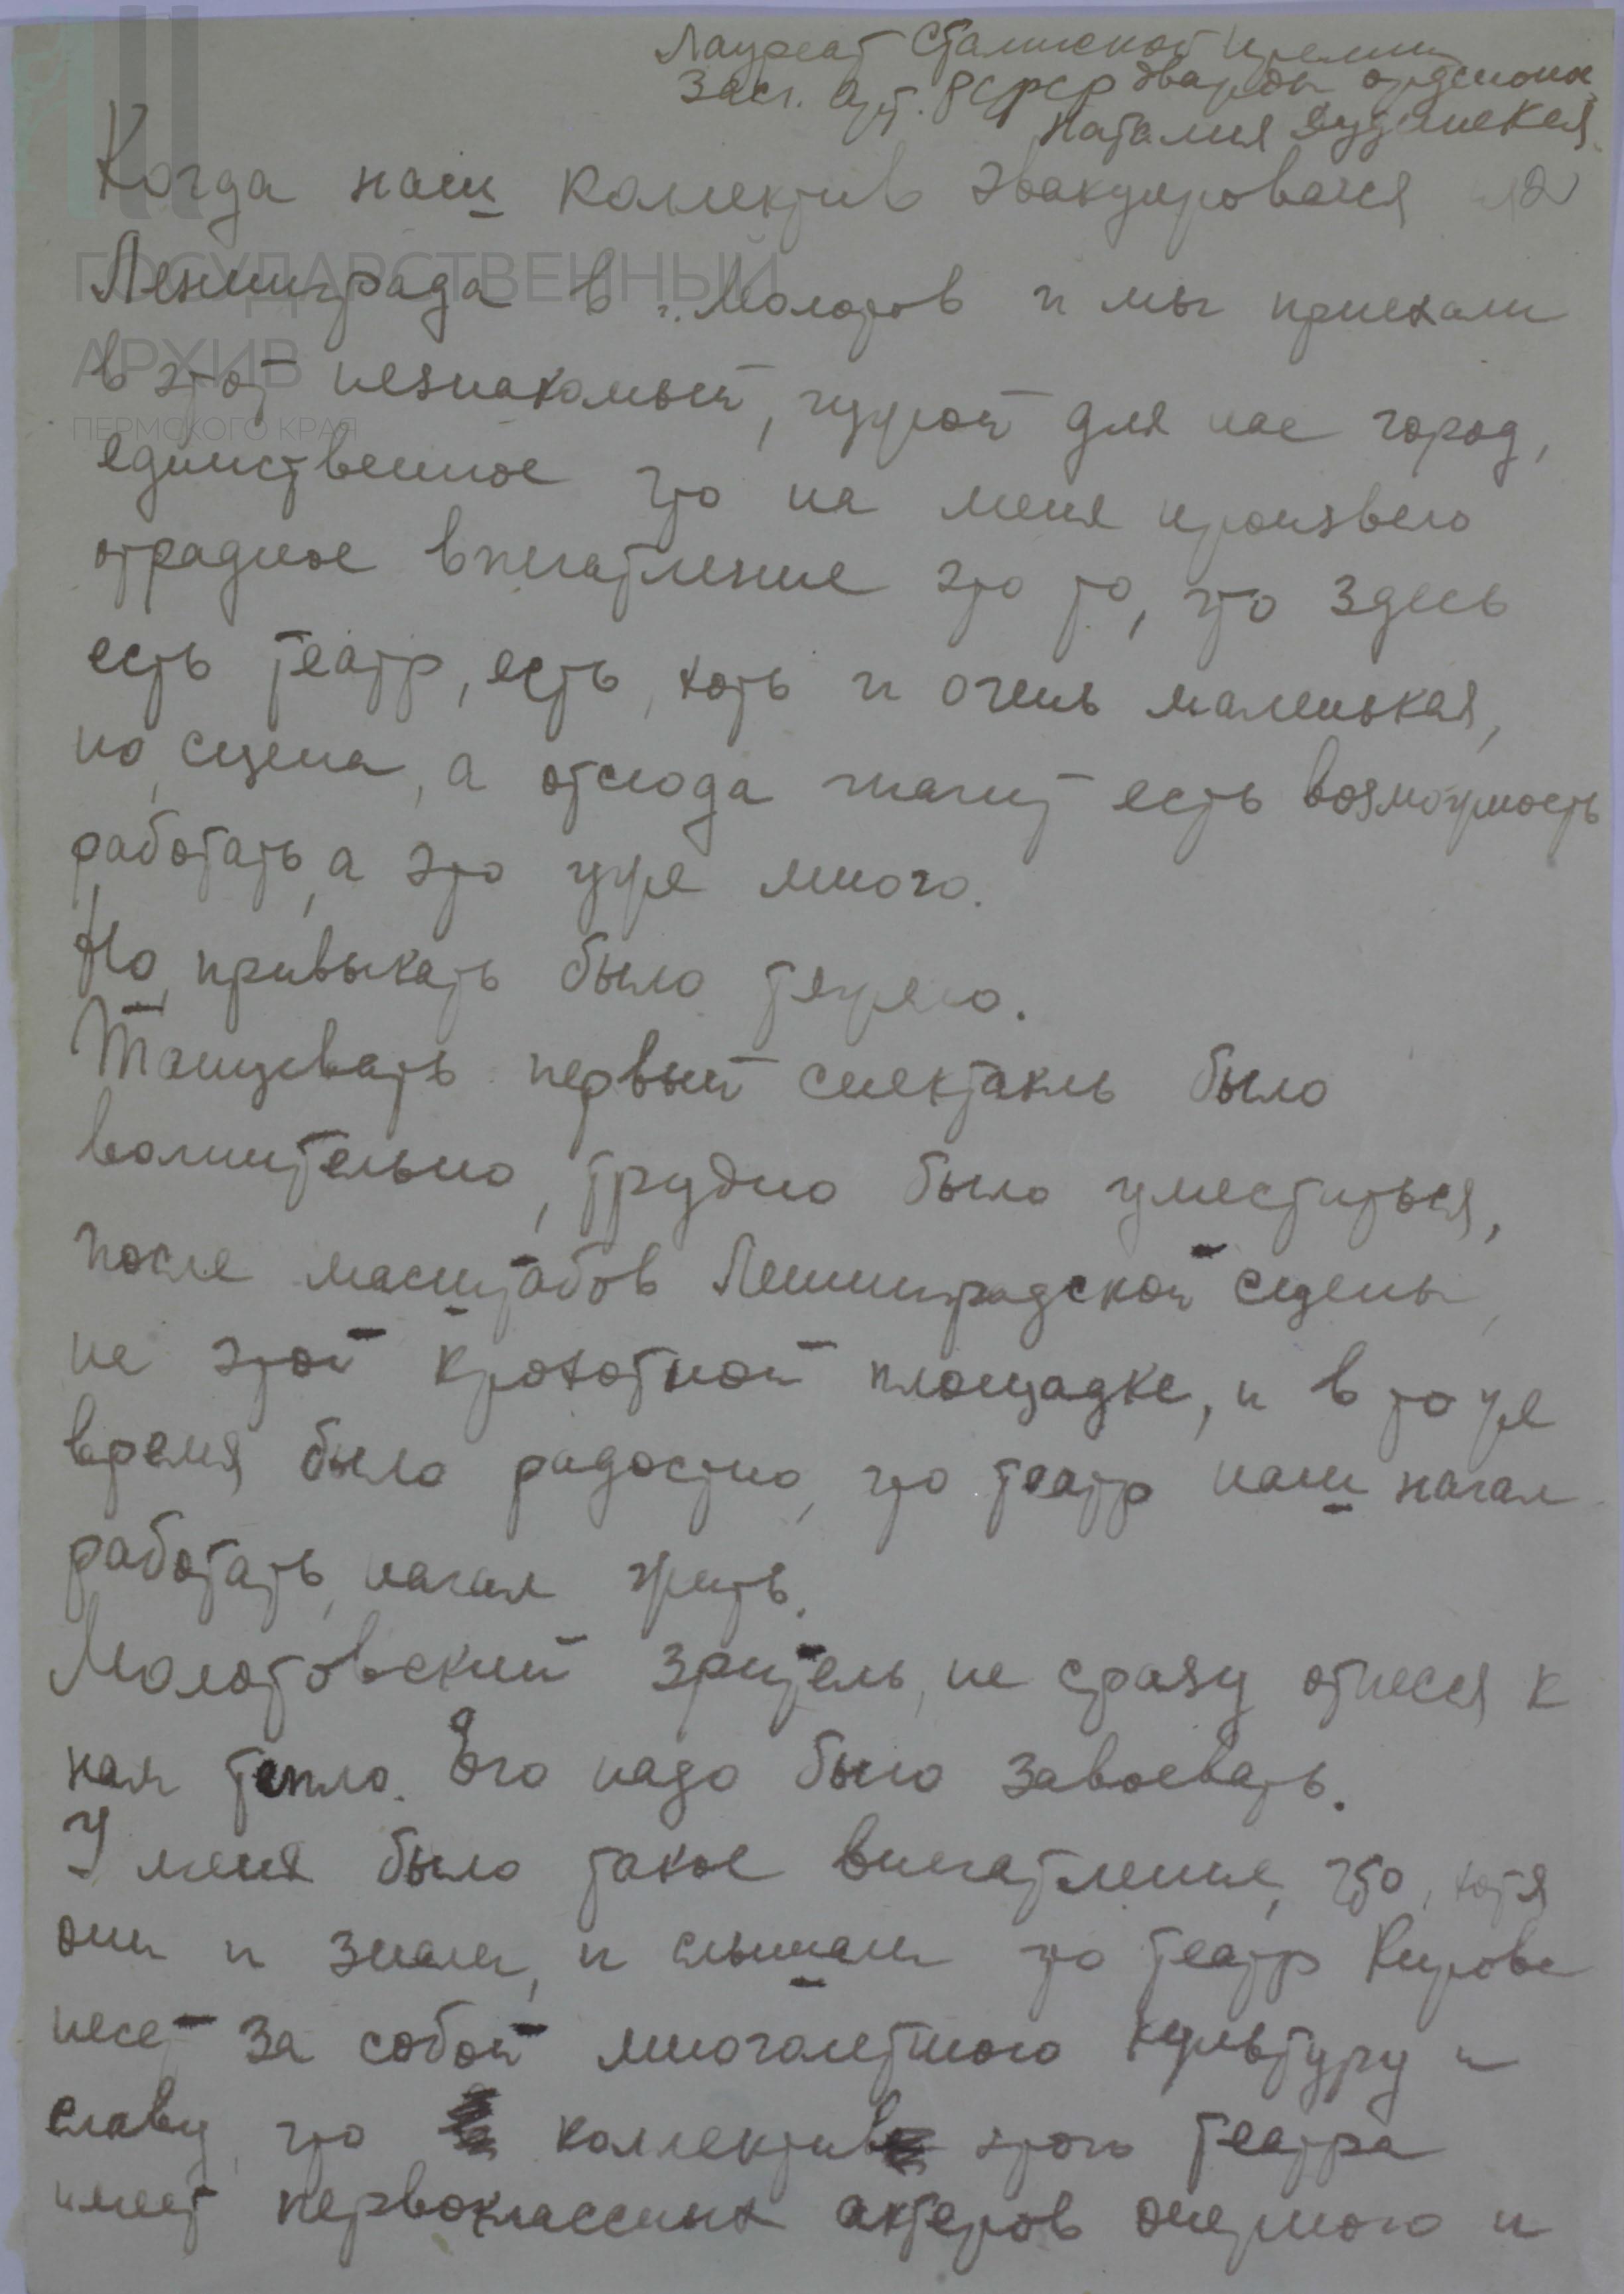 Лауреат Сталинской премии
Засл. арт. РСФСР дважды орденонос.
Наталия Дудинская.
Когда наш коллектив эвакуировался из
Ленинграда в г. Молотов и мы приехали
в этот незнакомый, чужой для нас город,
единственное что на меня произвело
отрадное впечатление это то, что здесь
есть театр, есть, хоть и очень маленькая,
но, сцена, а отсюда значит есть возможность
работать, а это уже много.
Но, привыкать было тяжело.
Танцевать первый спектакль было
волнительно, трудно было уместиться,
после масштабов Ленинградской сцены,
на этой крохотной площадке, и в то же
время было радостно, что театр наш начал
работать, начал жить.
Молотовский зритель, не сразу отнесся к
нам тепло. Его надо было завоевать.
У меня было такое впечатление, что, хотя
они и знали, и слышали что театр Кирова
несет за собой многолетнюю культуру и
славу, что коллектив этого театра
имеет первоклассных актеров оперного и
ГОСУДАРСТВЕННЫЙ
АРХИВ
ПЕРМСКОГО КРАЯ